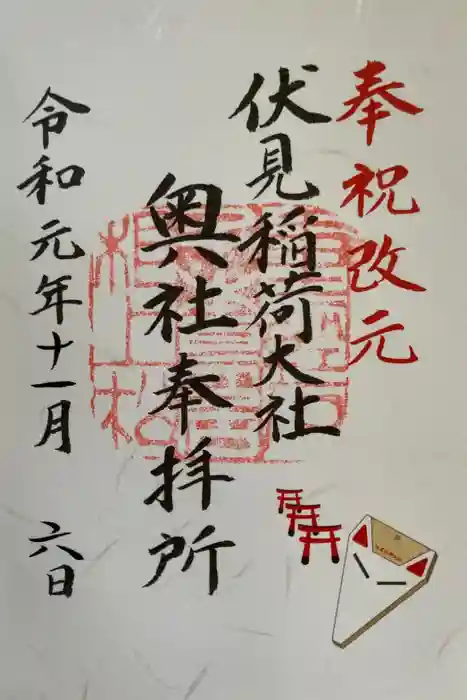 奉祝改元
伏見稲荷大社
奥社奉拝所
令和元年十一月 六日